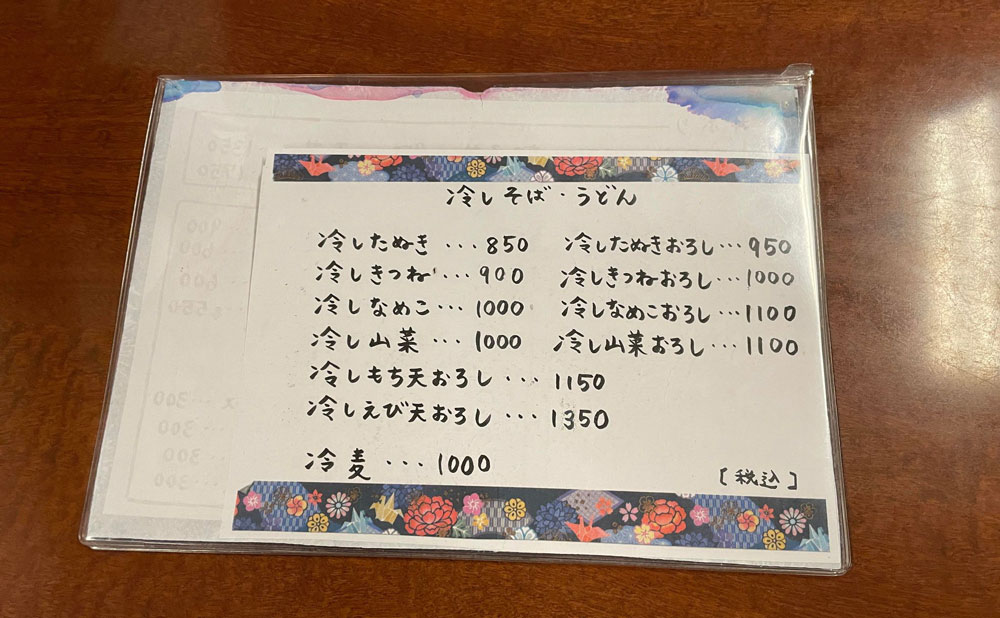 冷しそば・うどん
冷したぬき・・・850 冷したぬきおろし・・・950
冷しきつね・・・900 冷しきつねおろし・・・1000
冷しなめこ・・・1000 冷しなめこおろし・・・1100
冷し山菜・・・1000 冷し山菜おろし・・・1100
冷しもち天おろし・・・1150
冷しえび天おろし・・・1350
冷麦・・・1000
[税込]